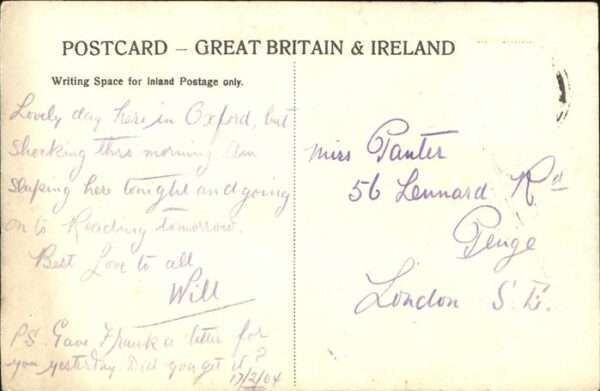 POSTCARD – GREAT BRITAIN & IRELAND
Writing Space for Inland Postage only.
Lovely day here in Oxford, but
shocking this morning. Am
sleeping here tonight and going
on to Reading tomorrow.
Best Love to all
Will
PS. Gave Frank a letter for
you yesterday. Did you get it?
17/2/04
Miss Panter
56 Lennard Rd
Penge
London S.E.